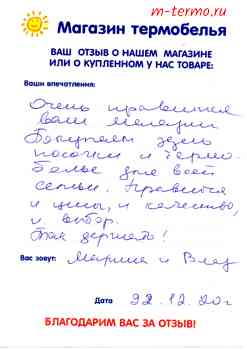 m-termo.ru
Магазин термобелья
ВАШ ОТЗЫВ О НАШЕМ МАГАЗИНЕ
ИЛИ О КУПЛЕННОМ У НАС ТОВАРЕ:
Ваши впечатления:
Очень нравится
ваш магазин
Покупаем здесь
носочки и термо-
белье для всей
семьи. Нравится
и цены, и качество,
и выбор.
Так держать!
Вас зовут: Марина и Влад
Дата 22.12.20г
БЛАГОДАРИМ ВАС ЗА ОТЗЫВ!